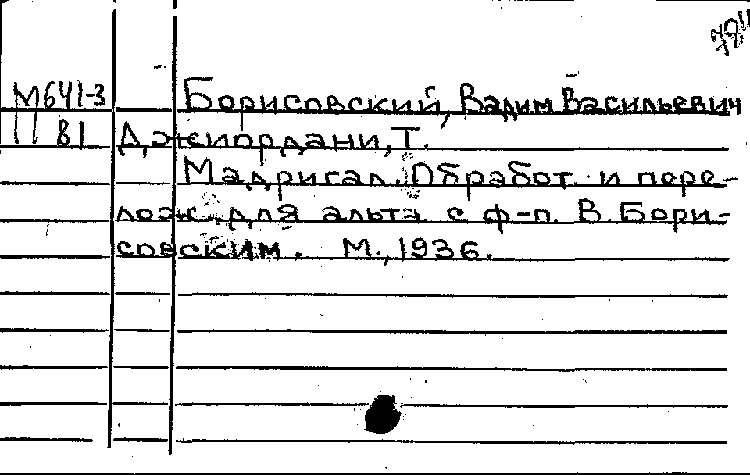 М641-3 Борисовский, Вадим Васильевич
81 Джиордани, Т.
Мадригал. Обработ. и пере-
лож. для альта с ф-п. В. Бори-
совским. М., 1936.